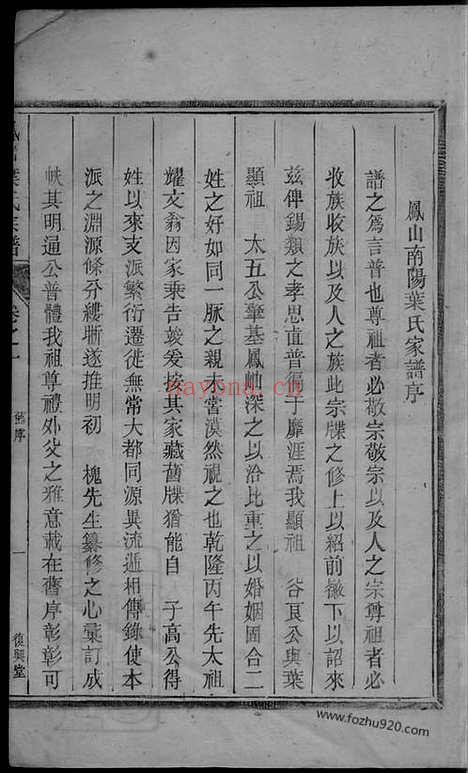 鳳山南陽葉氏家譜序
譜之爲言普也尊祖者必敬宗敬宗以及人之宗尊祖者必
收族收族以及人之族此宗牒之修上以紹前徽下以詔來
茲俾錫類之孝思直普徧于靡涯焉我顯祖 谷艮公與葉
顯祖 太五公肇基鳳岫深之以洽比重之以婚姻固合二
姓之好如同一脈之親未嘗漠然視之也乾隆丙午先太祖
耀文翁因家乘告竣爰按其家藏舊牒猶能自 子高公得
姓以來支派繁衍遷徙無常大都同源異流遞相傳錄使本
派之淵源條分縷晰遂推明初 槐先生纂修之心彙訂成
帙其明逼公普體我祖尊禮外父之雅意載在舊序彰彰可
葉氏宗譜
卷之一
舊序
一
復興堂
kayona.cn
www.fozhu920.com